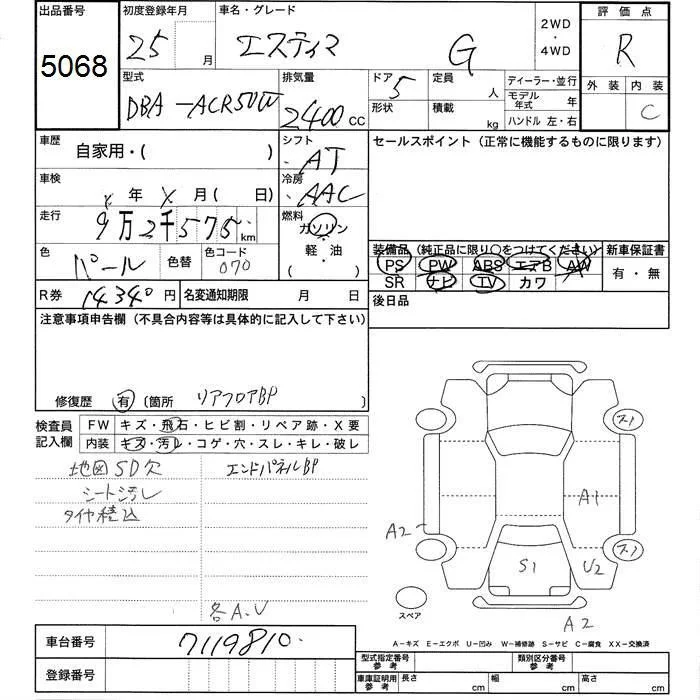 出品番号 初度登録年月 車名・グレード 2WD・4WD 評価点
5068 25 月 エスティマ G R
型式 排気量 ドア 5 定員 人 ディーラー・並行 外装 内装
DBA-ACR50W 2400 cc 形状 積載 kg モデル年式 年 C
ハンドル 左・右
車歴 自家用・( ) シフト AT セールスポイント(正常に機能するものに限ります)
車検 X 年 X 月( 日) 冷房 AAC
走行 9万2千575 km 燃料 ガソリン・軽・油 ( )
色 パール 色替 色コード 070
装備品(純正品に限り○をつけてください) 新車保証書
PS PW ABS エアB AW 有・無
SR ナビ TV カワ
R券 14340 円 名変通知期限 月 日 後日品
注意事項申告欄(不具合内容等は具体的に記入して下さい)
修復歴 有 (箇所 リアフロアBP )
検査員記入欄 FW キズ・飛石・ヒビ割・リペア跡・X要
内装 キズ・汚レ・コゲ・穴・スレ・キレ・破レ
地図SD欠 エンドパネルBP
シート汚レ
タイヤ積込
各A.U
ス1
A1
A2
ス2
S1 U2
スペア
A2
A-キズ E-エクボ U-凹み W-補修跡 S-サビ C-腐食 XX-交換済
車台番号 7119810
登録番号
型式指定番号 参考 類別区分番号 参考
車庫証明用 参考 長さ cm 幅 cm 高さ cm